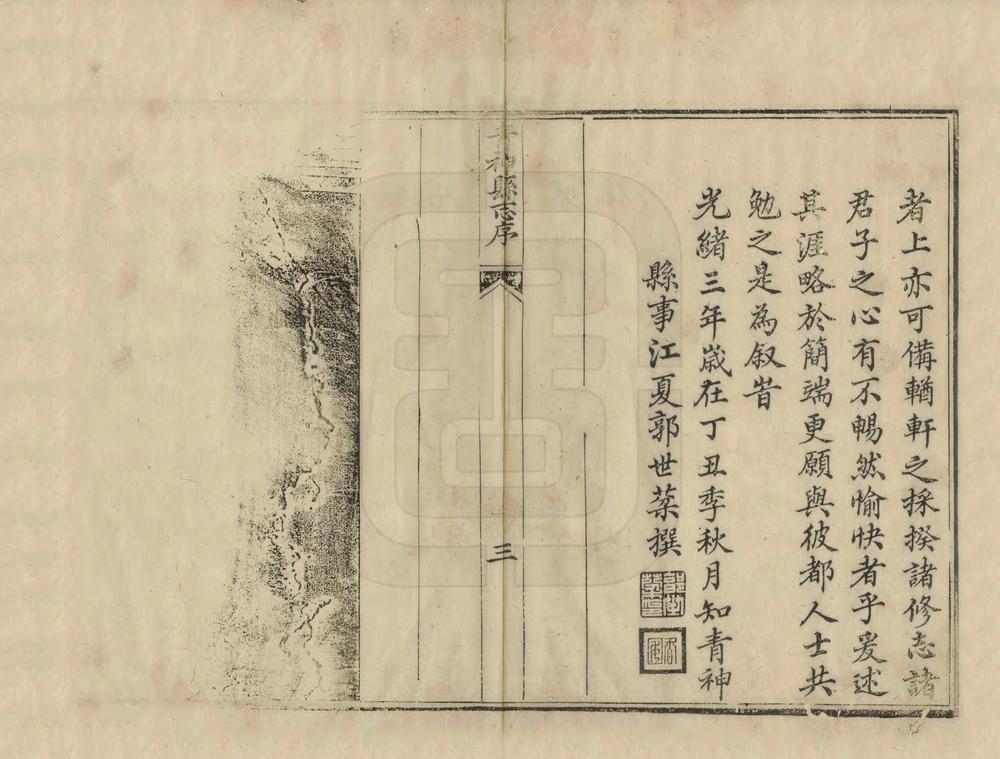 者上亦可備輶軒之採揆諸修志諸
君子之心有不暢然愉快者乎爰述
其涯略於簡端更願與彼都人士共
勉之是為叙旹
光緒三年歲在丁丑季秋月知青神
縣事江夏郭世棻撰
青神縣志序
三